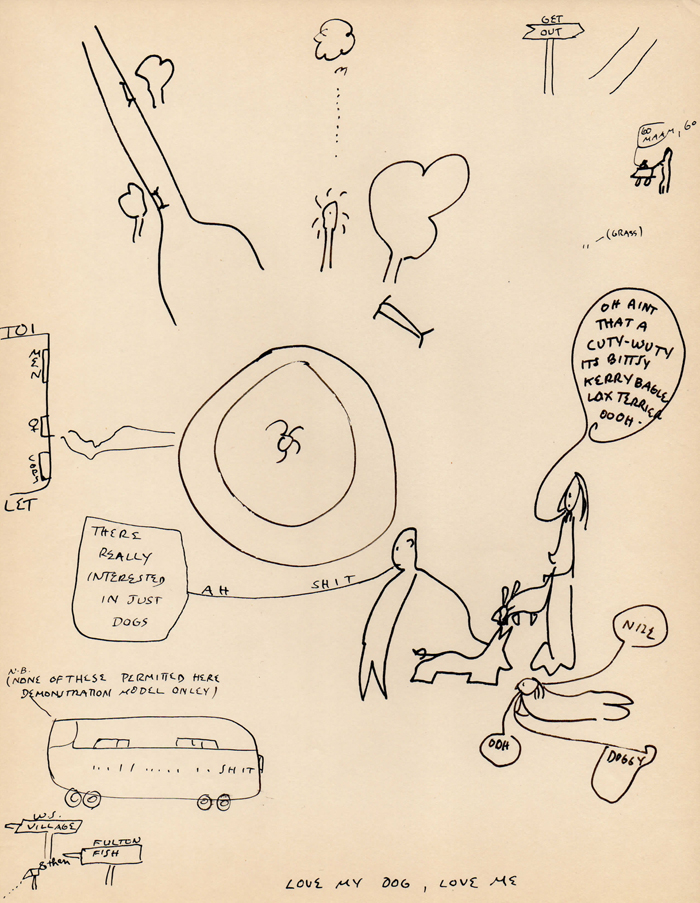 GET
OUT
GO
MAAM, GO
(GRASS)
OH AINT
THAT A
CUTY-WUTY
ITS BITTSY
KERRY BAGLE
LOX TERRIER
OOOH.
TOI
MEN
LET
THERE
REALLY
INTERESTED
IN JUST
DOGS
AH SHIT
NIZE
OOH
DOGGY
N.B.
(NONE OF THESE PERMITTED HERE
DEMONSTRATION MODEL ONLEY)
SHIT
W.S.
VILLAGE
FULTON
FISH
LOVE MY DOG, LOVE ME